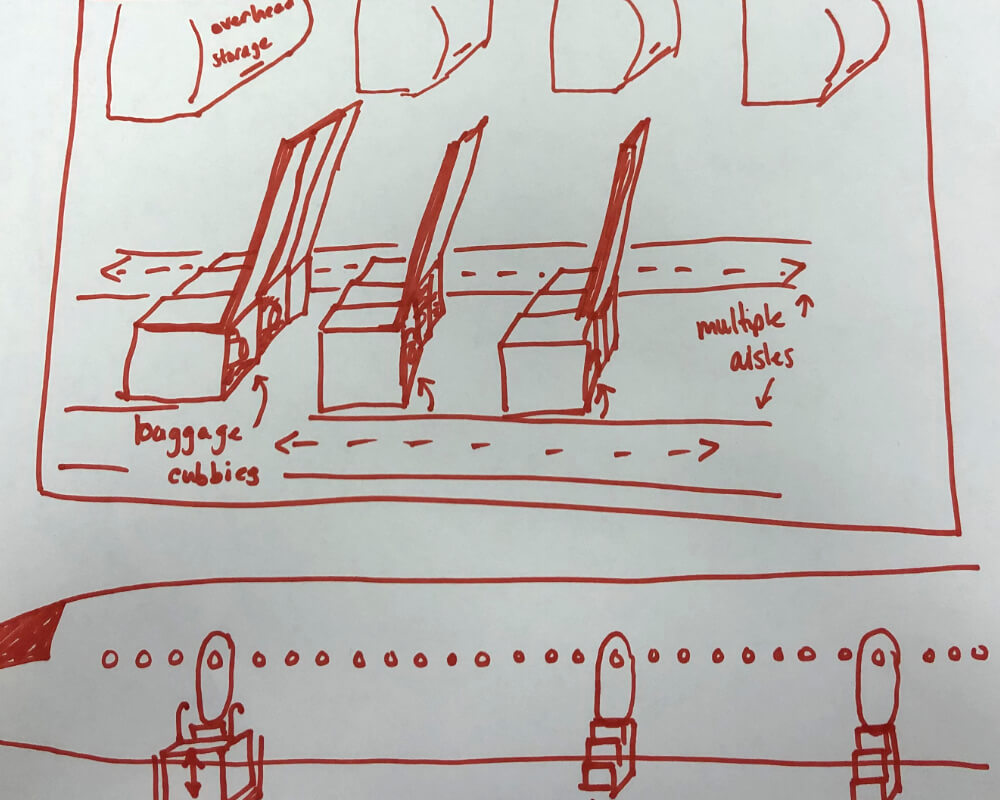 overhead
storage
multiple
aisles
baggage
cubbies